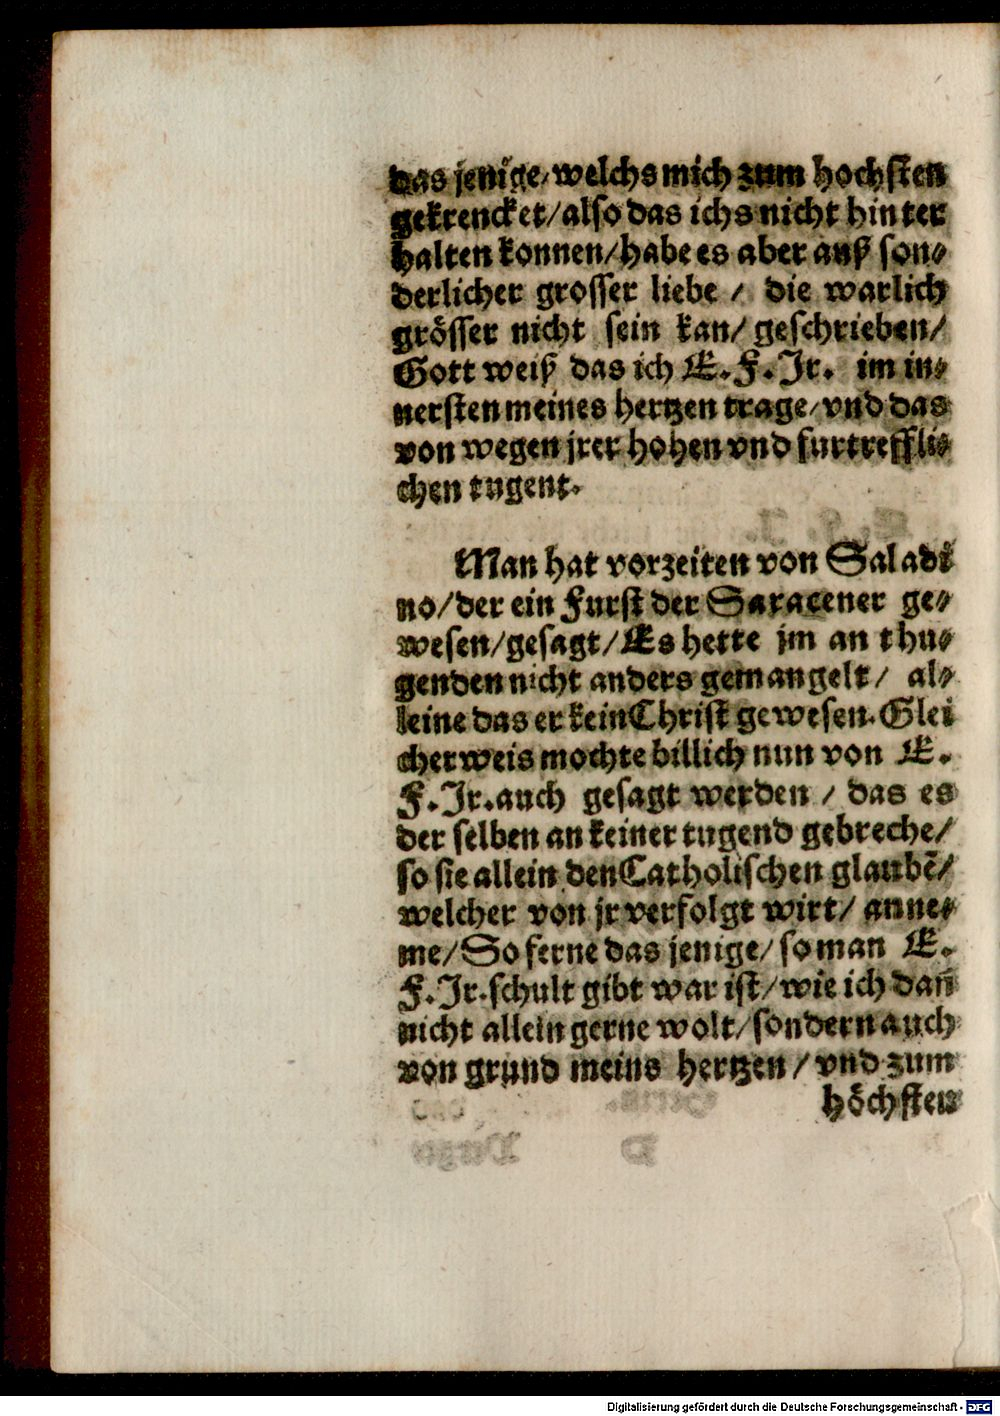 das jenige/welchs mich zum hochsten
gekrencket/also das ichs nicht hinter
halten konnen/habe es aber auß son⸗
derlicher grosser liebe / die warlich
grösser nicht sein kan/ geschrieben/
Gott weiß das ich E. F. Jr. im in⸗
nersten meines hertzen trage/vnd das
von wegen jrer hohen vnd furtreffli⸗
chen tugent.
Man hat vorzeiten von Saladi
no/der ein Furst der Saracener ge⸗
wesen/gesagt/Es hette jm an thu⸗
genden nicht anders gemangelt/ al⸗
leine das er kein Christ gewesen. Glei
cher weis mochte billich nun von E.
F. Jr. auch gesagt werden / das es
der selben an keiner tugend gebreche/
so sie allein den Catholischen glaubē/
welcher von jr verfolgt wirt/ anne⸗
me/So ferne das jenige/ so man E.
F. Jr. schult gibt war ist/wie ich dan̄
nicht allein gerne wolt/sondern auch
von grund meins hertzen/ vnd zum
höchsten
Digitalisierung gefördert durch die Deutsche Forschungsgemeinschaft - DFG